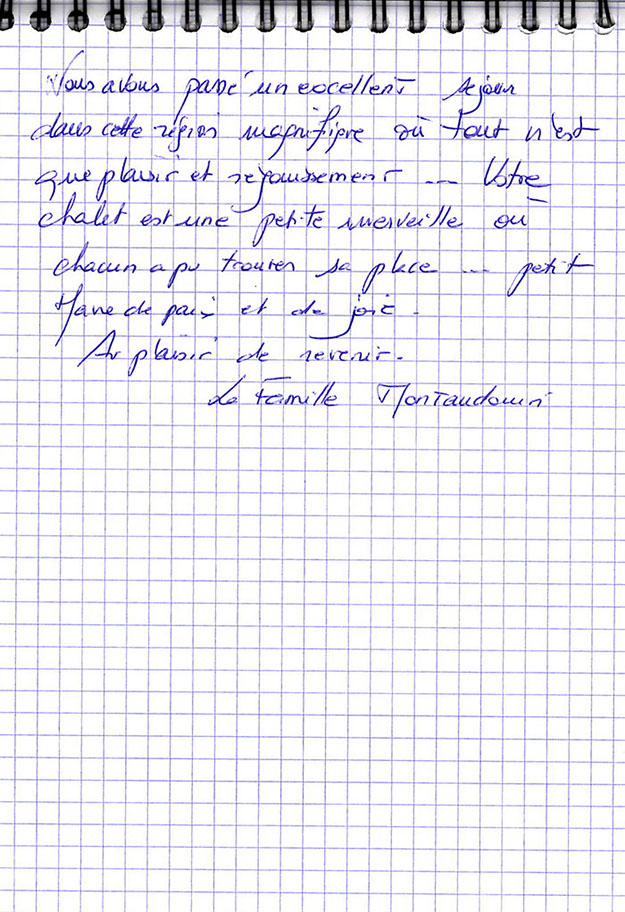 Nous avons passé un excellent sejour
dans cette région magnifique où tout n'est
que plaisir et rejouissement ... Votre
chalet est une petite merveille où
chacun a pu trouver sa place ... petit
Havre de paix et de joie .
Au plaisir de revenir.
La Famille